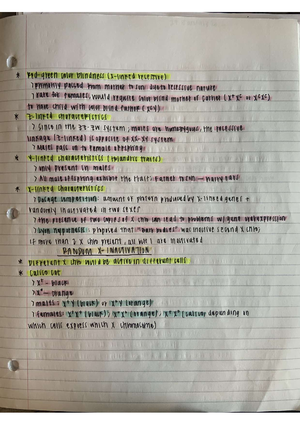 * Red-green color blindness (X-linked recessive)
> primarily passed from mother to son due to recessive nature
> rare for females, would require color blind mother or carrier
to have child with color blind father
* Z-linked characteristics
> since in the ZZ-ZW system, males are homozygous, the recessive
linkage is opposite of XX-XY system
> males pass on to female offspring
* Y-linked characteristics
> only present in males
> All male offspring exhibit the trait: Father → son
* X-linked characteristics
> Dosage compensation: amount of protein produced by X-linked genes
randomly inactivated in two sexes
> the presence of two copies of X chm can lead to problems w/ gene
> Lyon hypothesis: proposed that "Barr bodies" was inactive second X chm;
if more than 2 X chm present, all but 1 are inactivated
RANDOM X-INACTIVATION
* Different X chm would be active in different cells
* Calico cat
- black
- orange
> males: (black) or (orange)
> females: (black), (orange), (calico depending on
which cells express which X chromosome)